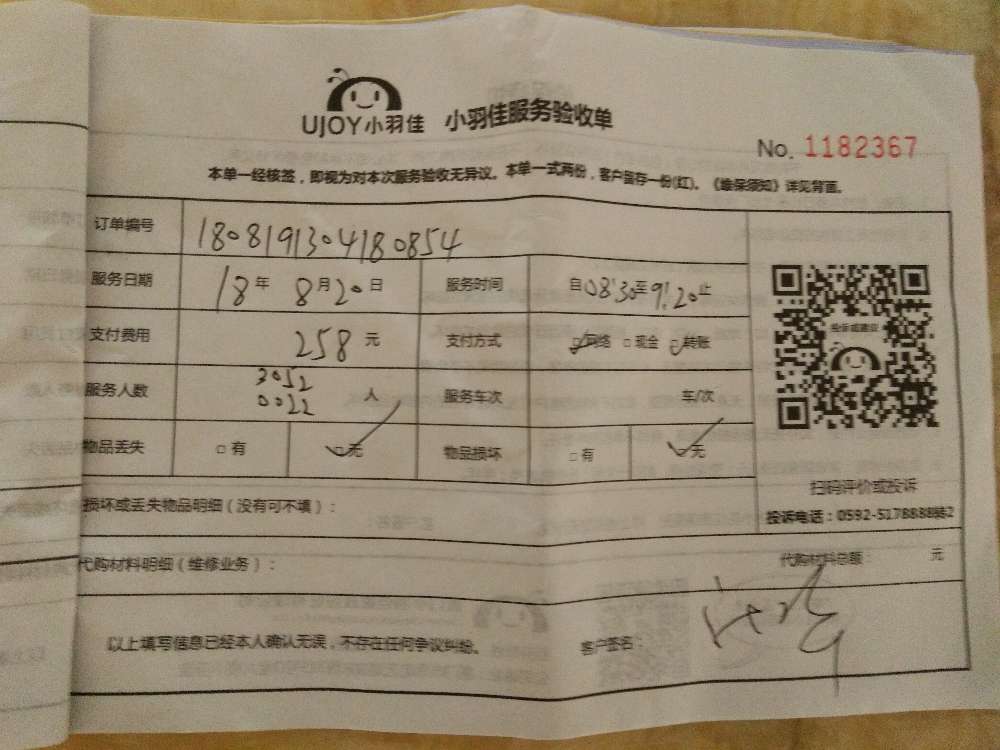 UJOY小羽佳 小羽佳服务验收单
No. 1182367
本单一经核签，即视为对本次服务验收无异议。本单一式两份，客户留存一份(红)。《维保须知》详见背面。
订单编号 1808191304180854
服务日期 18年 8月20日 服务时间 自08:30至9:20止
支付费用 258元 支付方式 ☑网络 □现金 ☑转账
服务人数 3052 0022 人 服务车次 车/次
物品丢失 □有 ☑无 物品损坏 □有 ☑无
投诉或建议
扫码评价或投诉
投诉电话：0592-5178888转2
损坏或丢失物品明细（没有可不填）：
代购材料明细（维修业务）： 代购材料总额： 元
以上填写信息已经本人确认无误，不存在任何争议纠纷。 客户签名：